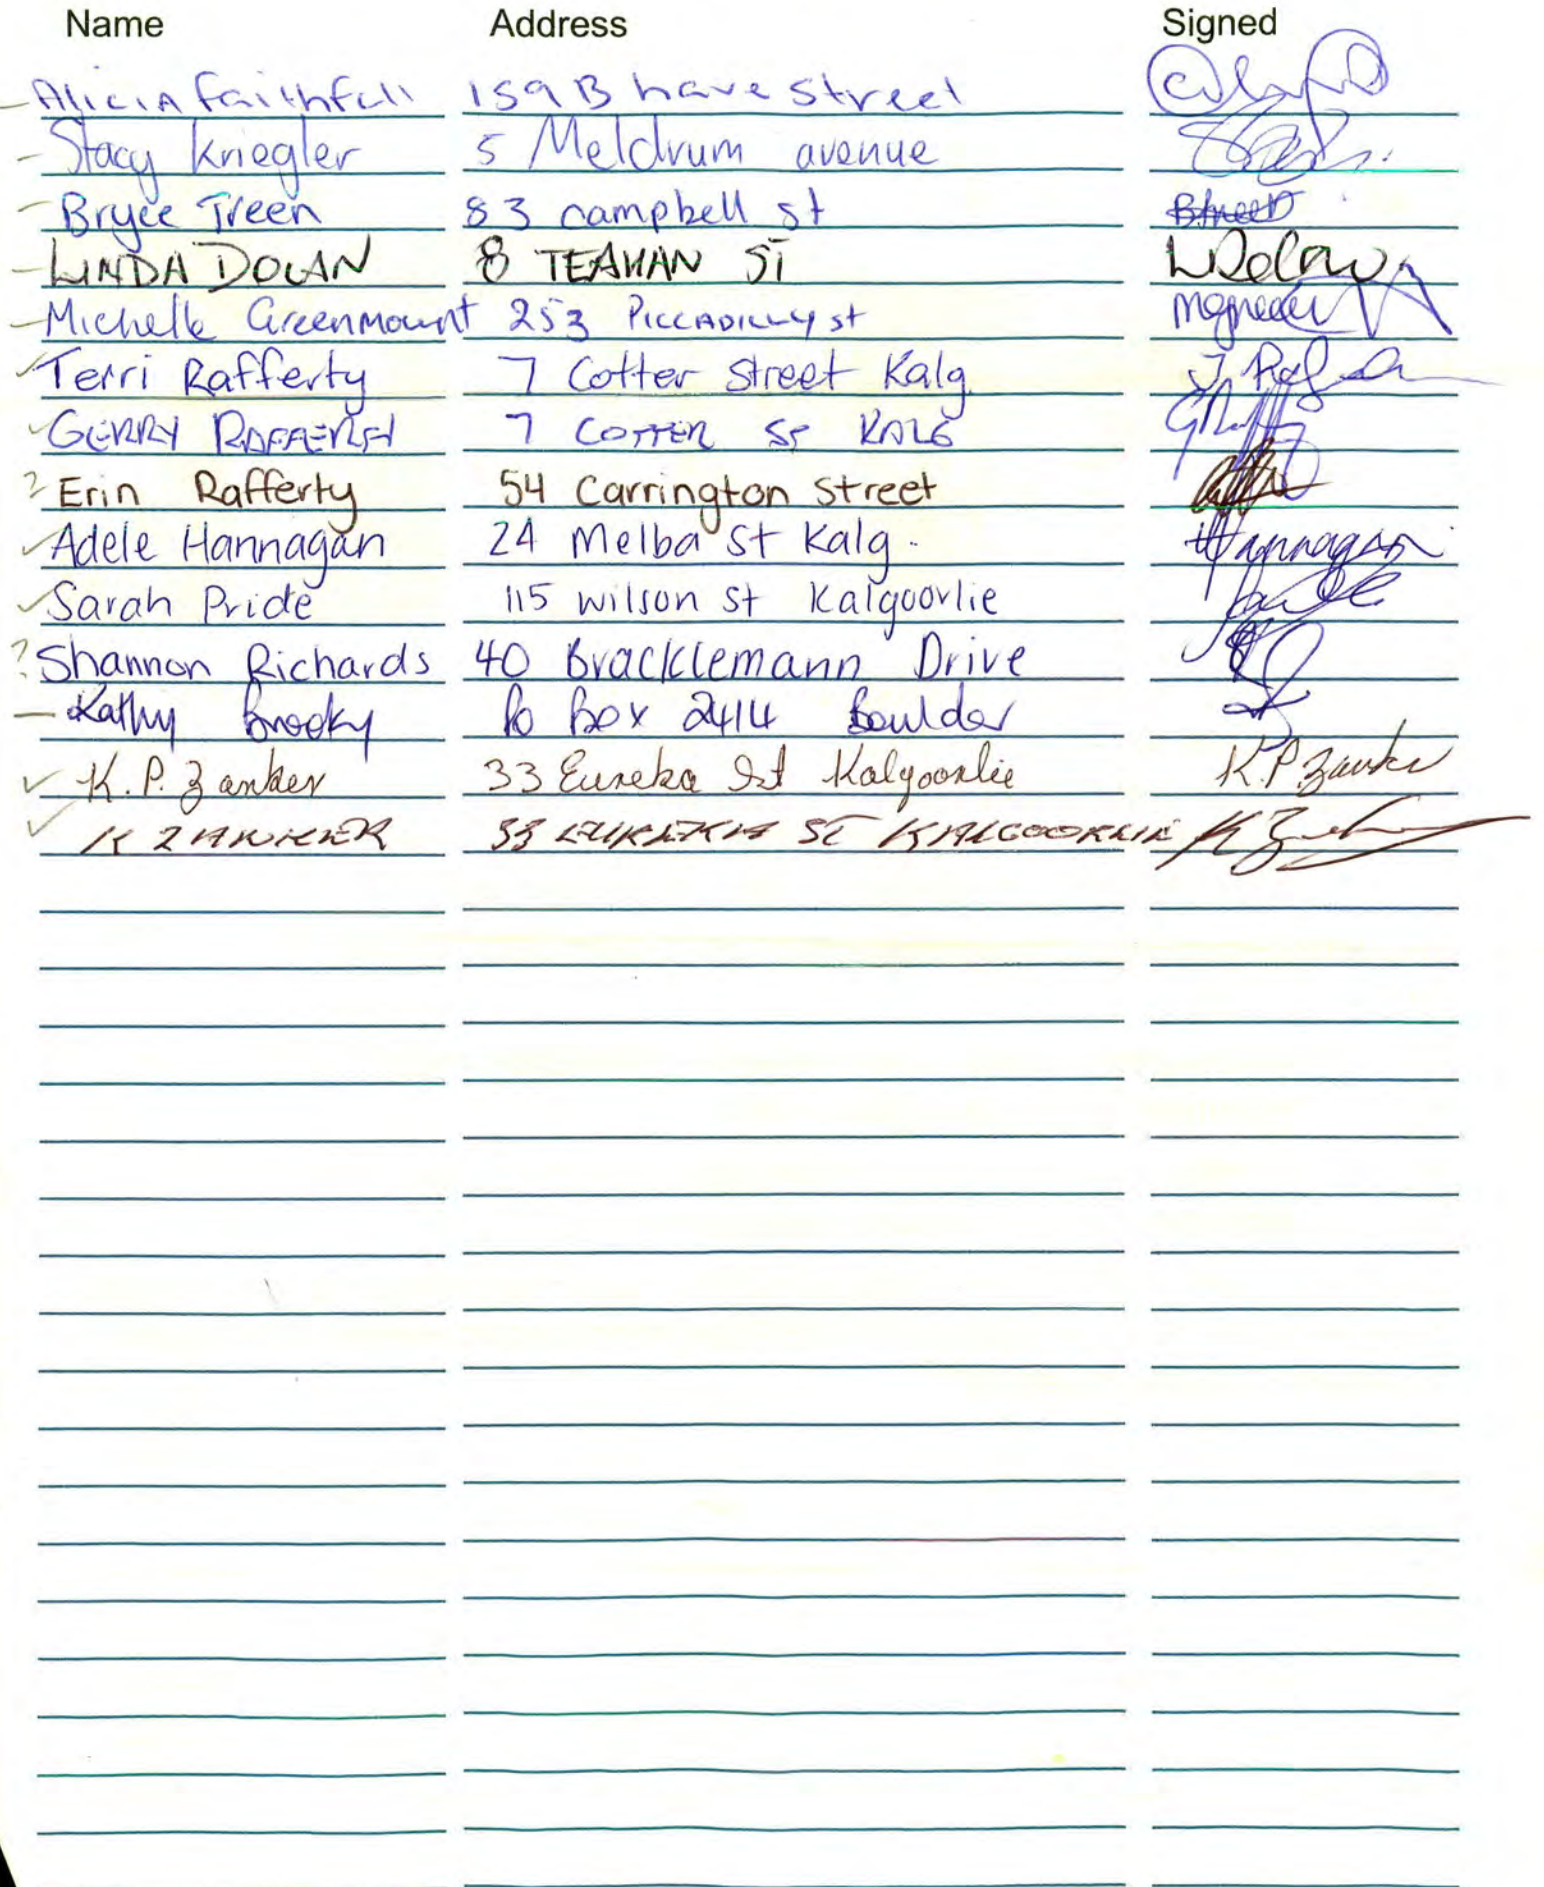 Name Address Signed
- Alicia Faithfull 159B hare street
- Stacy Kriegler 5 Meldrum avenue
- Bryce Treen 83 campbell st
- LINDA DOLAN 8 TEAHAN ST LDolan
- Michelle Greenmount 253 PICCADILLY st
✓ Terri Rafferty 7 Cotter Street Kalg
✓ GERRY RAFFERTY 7 COTTER ST KALG
? Erin Rafferty 54 Carrington Street
✓ Adele Hannagan 24 Melba St Kalg. Hannagan
✓ Sarah Pride 115 wilson st Kalgoorlie
? Shannon Richards 40 Bracklemann Drive
- Kathy Brooky Po Box 2414 Boulder
✓ K.P. Zanker 33 Eureka St Kalgoorlie K.P. Zanker
✓ K ZANKER 33 EUREKA ST KALGOORLIE